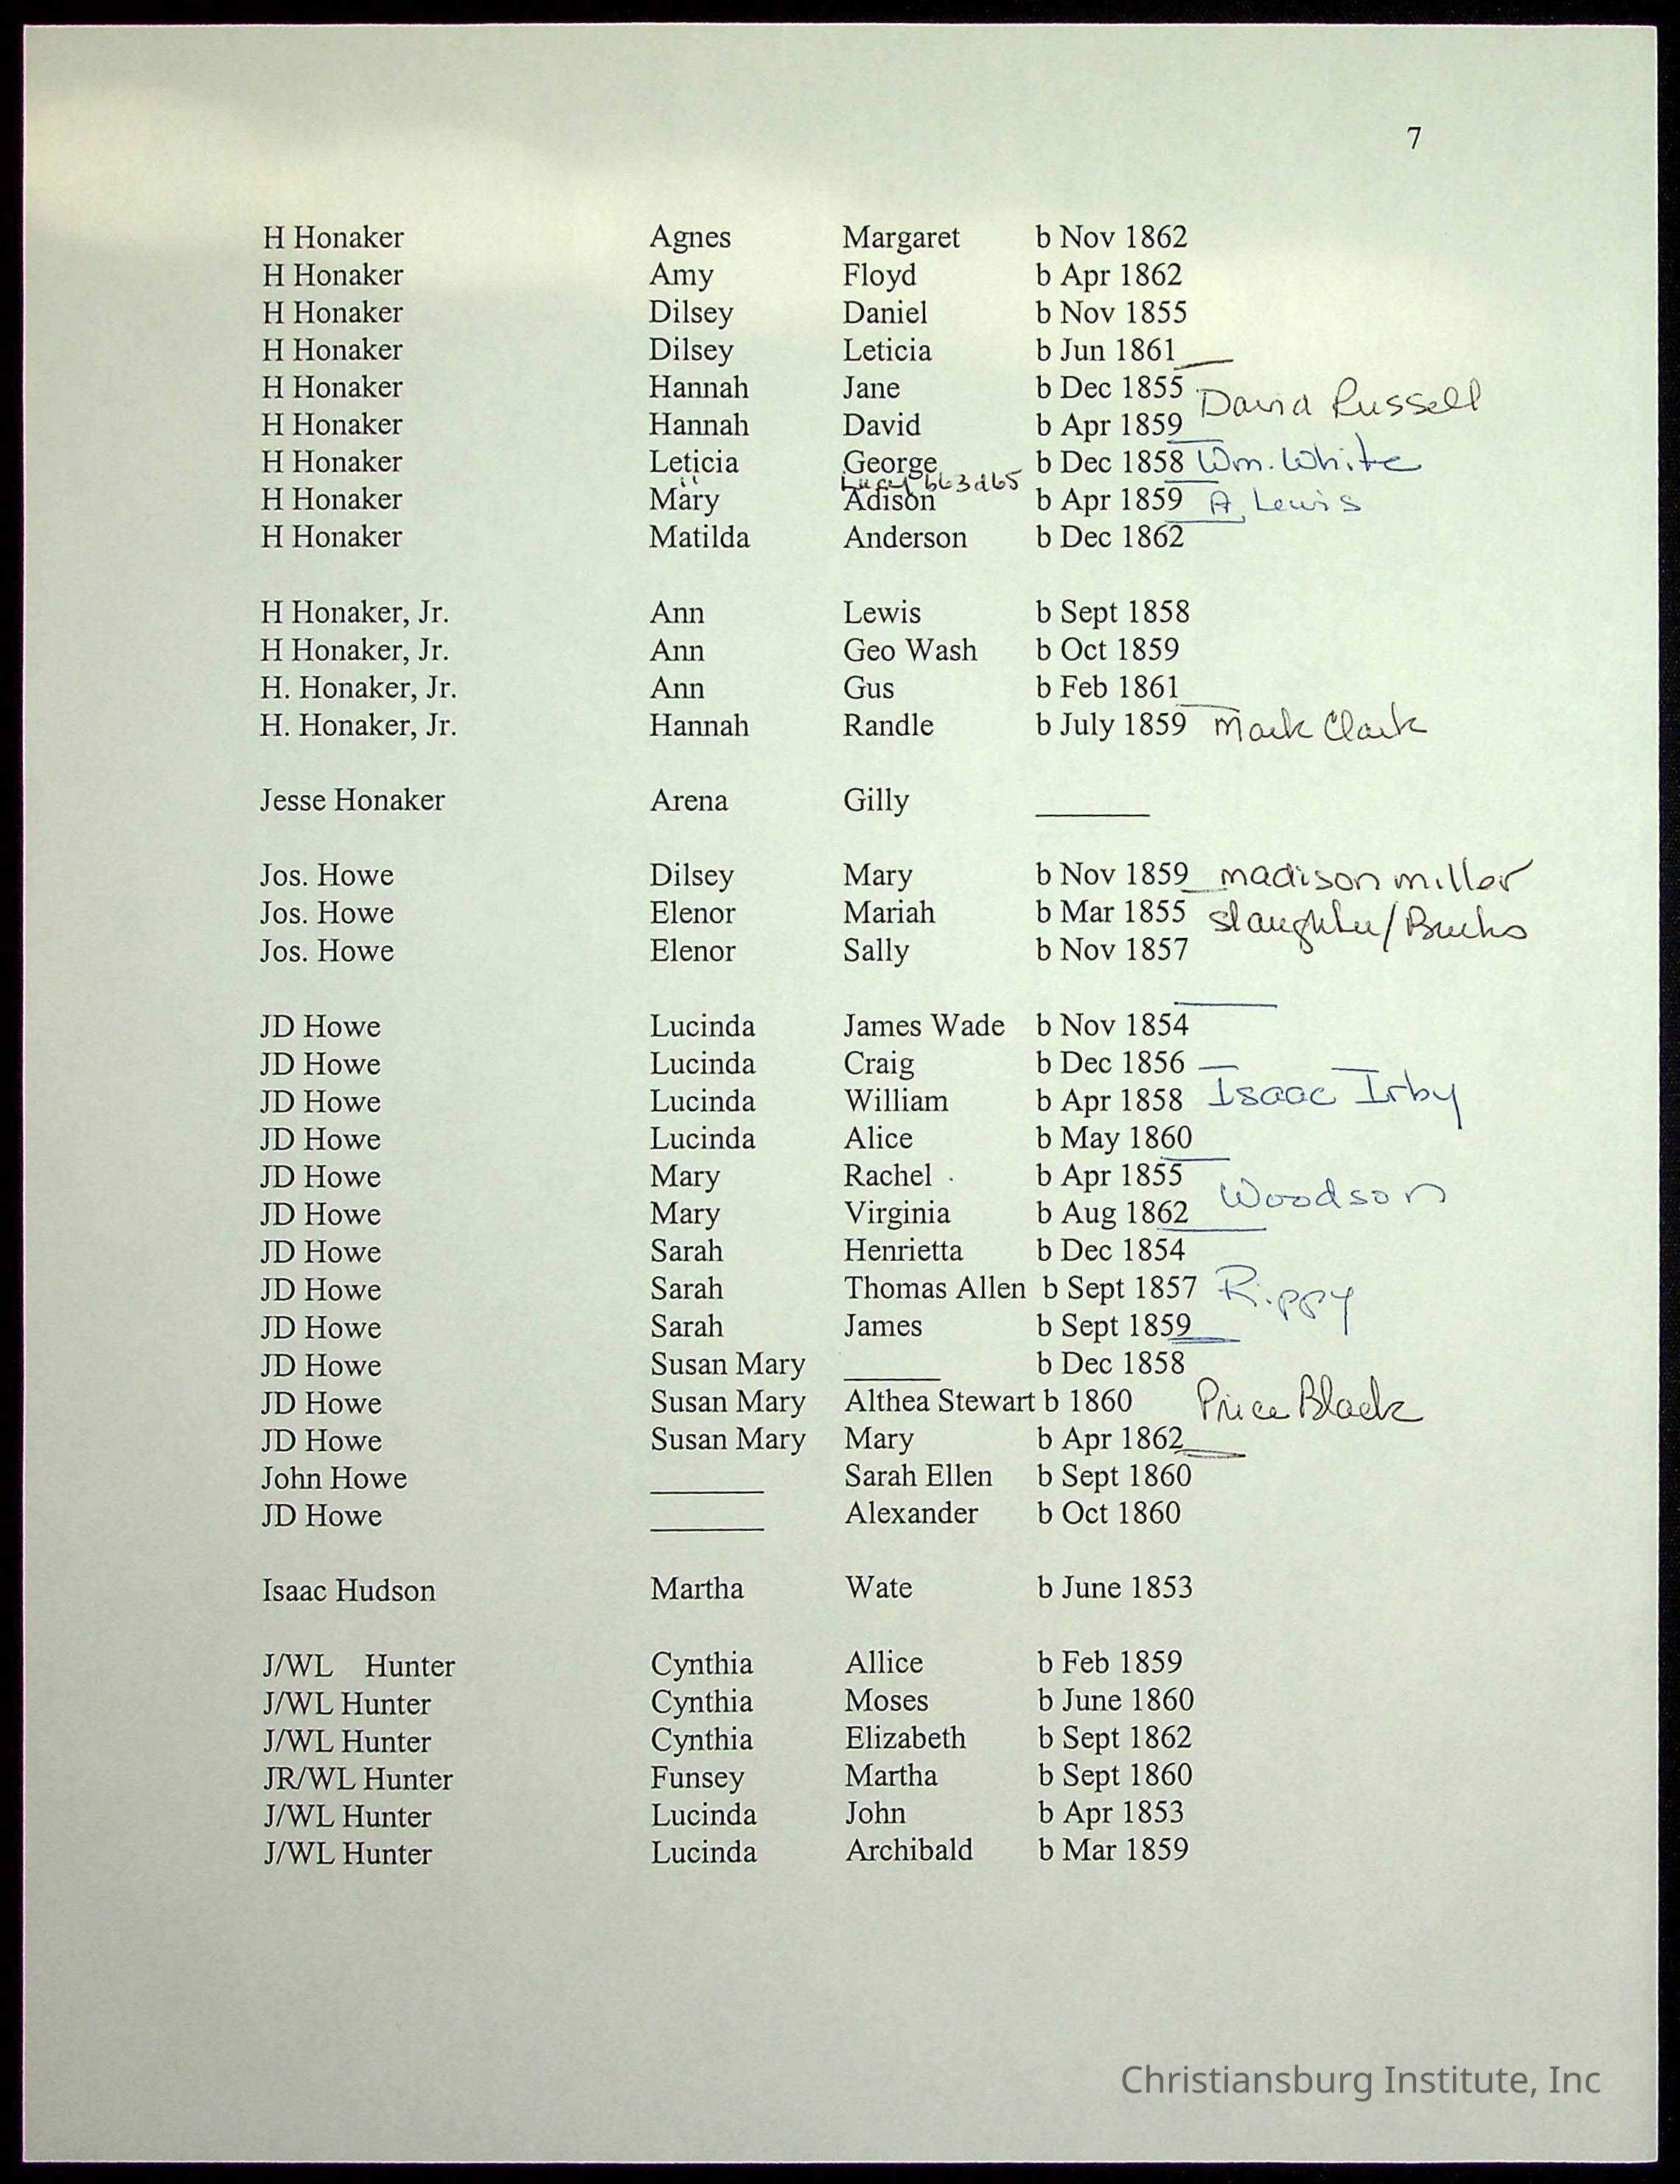 7
H Honaker Agnes Margaret b Nov 1862
H Honaker Amy Floyd b Apr 1862
H Honaker Dilsey Daniel b Nov 1855
H Honaker Dilsey Leticia b Jun 1861
H Honaker Hannah Jane b Dec 1855 David Russell
H Honaker Hannah David b Apr 1859
H Honaker Leticia George b Dec 1858 Wm. White
" Lucy b63 d65
H Honaker Mary Adison b Apr 1859 A Lewis
H Honaker Matilda Anderson b Dec 1862
H Honaker, Jr. Ann Lewis b Sept 1858
H Honaker, Jr. Ann Geo Wash b Oct 1859
H. Honaker, Jr. Ann Gus b Feb 1861
H. Honaker, Jr. Hannah Randle b July 1859 Mark Clark
Jesse Honaker Arena Gilly ______
Jos. Howe Dilsey Mary b Nov 1859 madison miller
Jos. Howe Elenor Mariah b Mar 1855 slaughter/
Jos. Howe Elenor Sally b Nov 1857
JD Howe Lucinda James Wade b Nov 1854
JD Howe Lucinda Craig b Dec 1856
JD Howe Lucinda William b Apr 1858 Isaac Irby
JD Howe Lucinda Alice b May 1860
JD Howe Mary Rachel b Apr 1855
JD Howe Mary Virginia b Aug 1862 Woodson
JD Howe Sarah Henrietta b Dec 1854
JD Howe Sarah Thomas Allen b Sept 1857 Rippy
JD Howe Sarah James b Sept 1859
JD Howe Susan Mary ______ b Dec 1858
JD Howe Susan Mary Althea Stewart b 1860 Price Black
JD Howe Susan Mary Mary b Apr 1862
John Howe ______ Sarah Ellen b Sept 1860
JD Howe ______ Alexander b Oct 1860
Isaac Hudson Martha Wate b June 1853
J/WL Hunter Cynthia Allice b Feb 1859
J/WL Hunter Cynthia Moses b June 1860
J/WL Hunter Cynthia Elizabeth b Sept 1862
JR/WL Hunter Funsey Martha b Sept 1860
J/WL Hunter Lucinda John b Apr 1853
J/WL Hunter Lucinda Archibald b Mar 1859
Christiansburg Institute, Inc